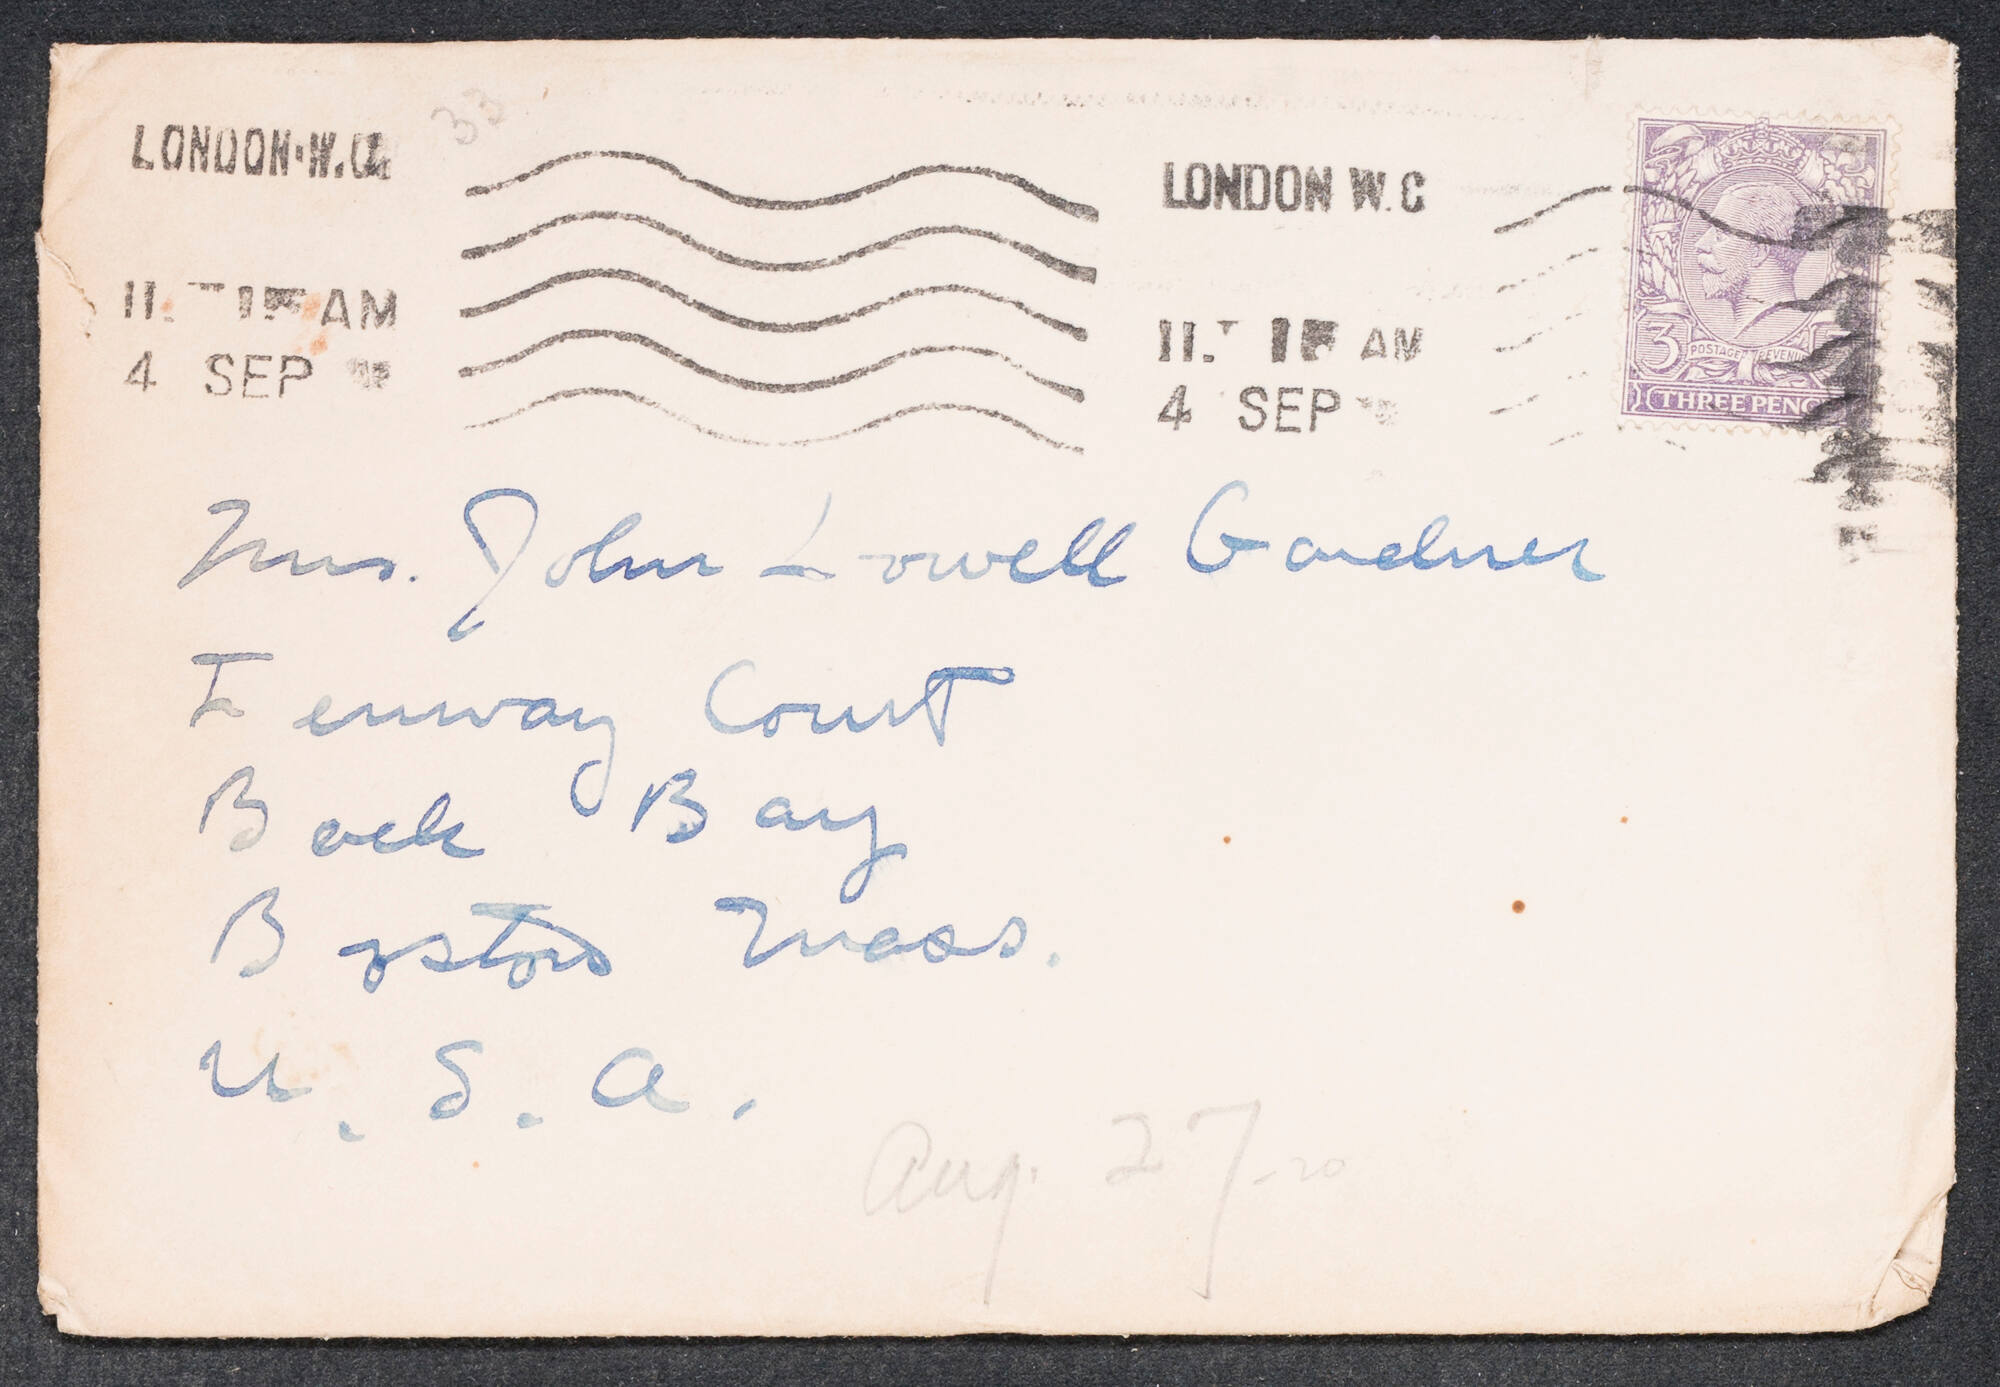 33
LONDON·W.C.
LONDON W.C
11. 15 AM
11. 15 AM
4 SEP
4 SEP
3
POSTAGE REVENUE
THREE PENC
Mrs. John Lowell Gardner
Fenway Court
Back Bay
Boston Mass.
U. S. A.
Aug. 27-20